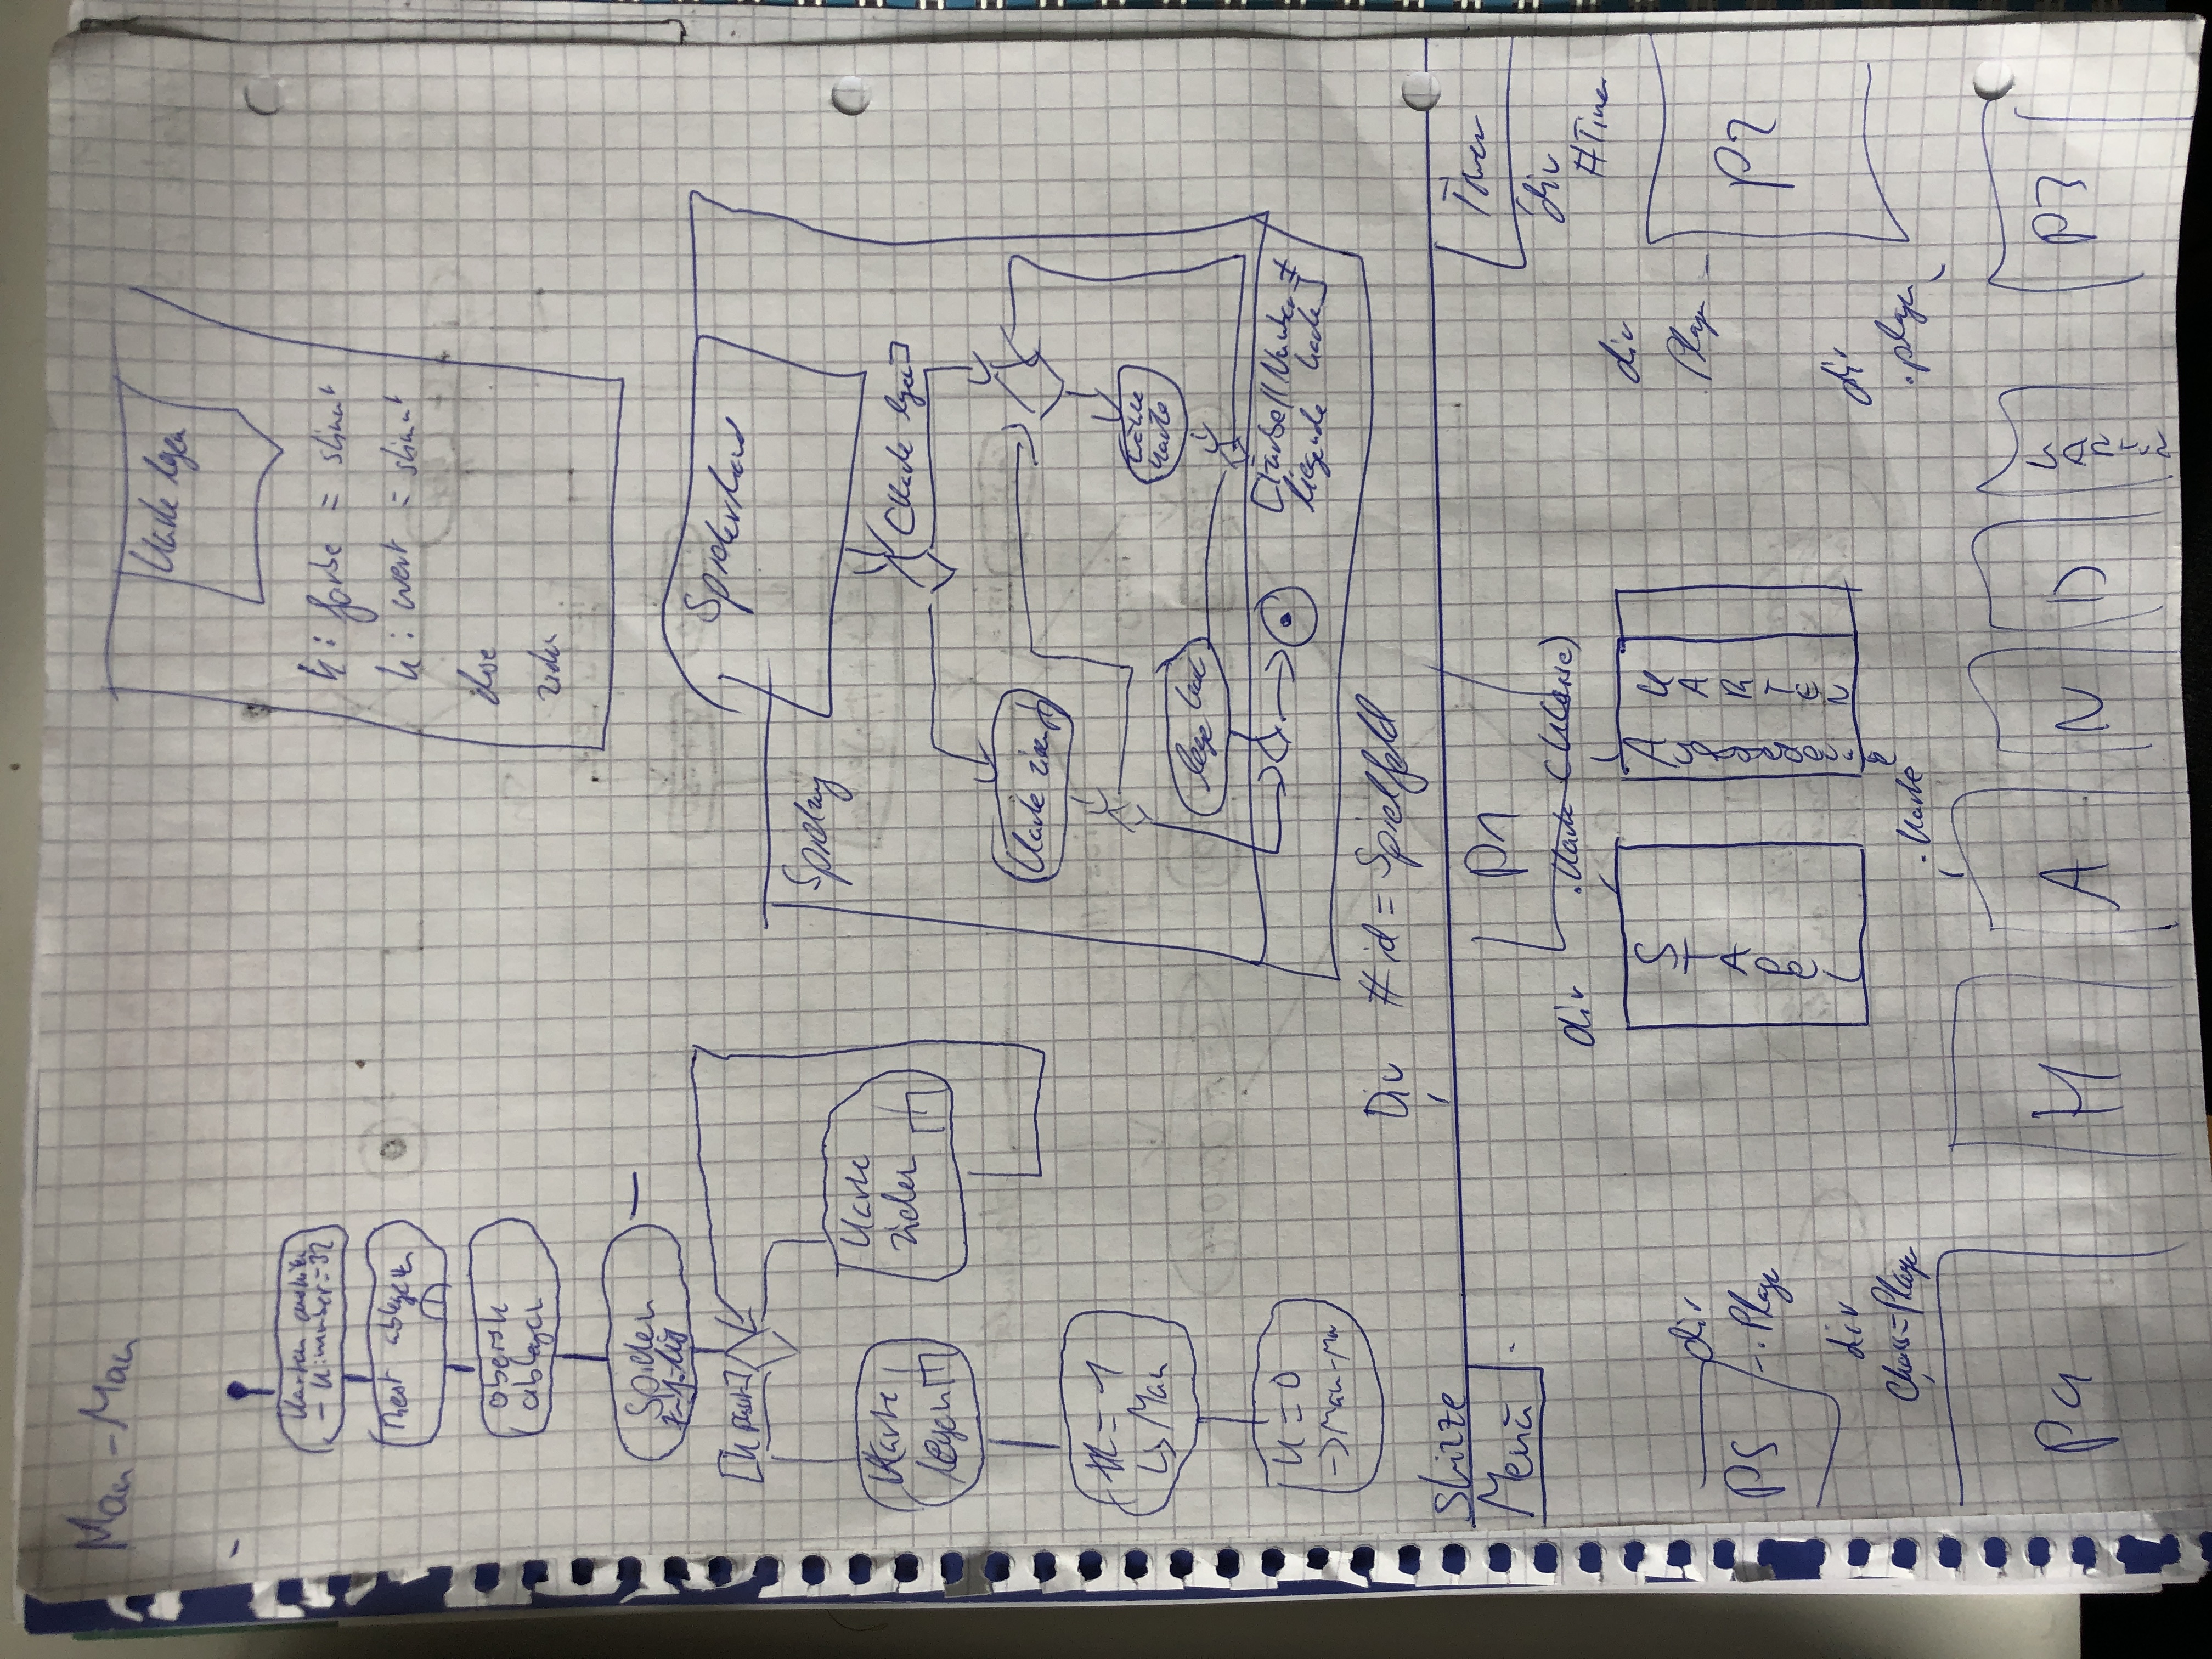 Mau-Mau
Karten austeilen
- K:number=32
Rest ablegen
oberste
ablegen
Spielen
[K passt]
Karte
legen
Karte
ziehen
#K = 1
↳ Mau
K = 0
-> Mau-Mau
Karte legen
K: farbe = stimmt
K: wert = stimmt
else
ziehen
Spielerhand
Spielzug
[Karte legen]
Karte ziehen
wähle
Karte
lege Karte
[Farbe || Number ≠
liegende Karte]
Div #id = Spielfeld
Skizze
Menü
P1
Timer
div
#Timer
div .Karte (Klasse)
STAPEL
KARTEN
div
Player
P2
div
.Player
P5
div
Class=Player
P4
.Karte
H A N D
KARTEN
div
.player
P3